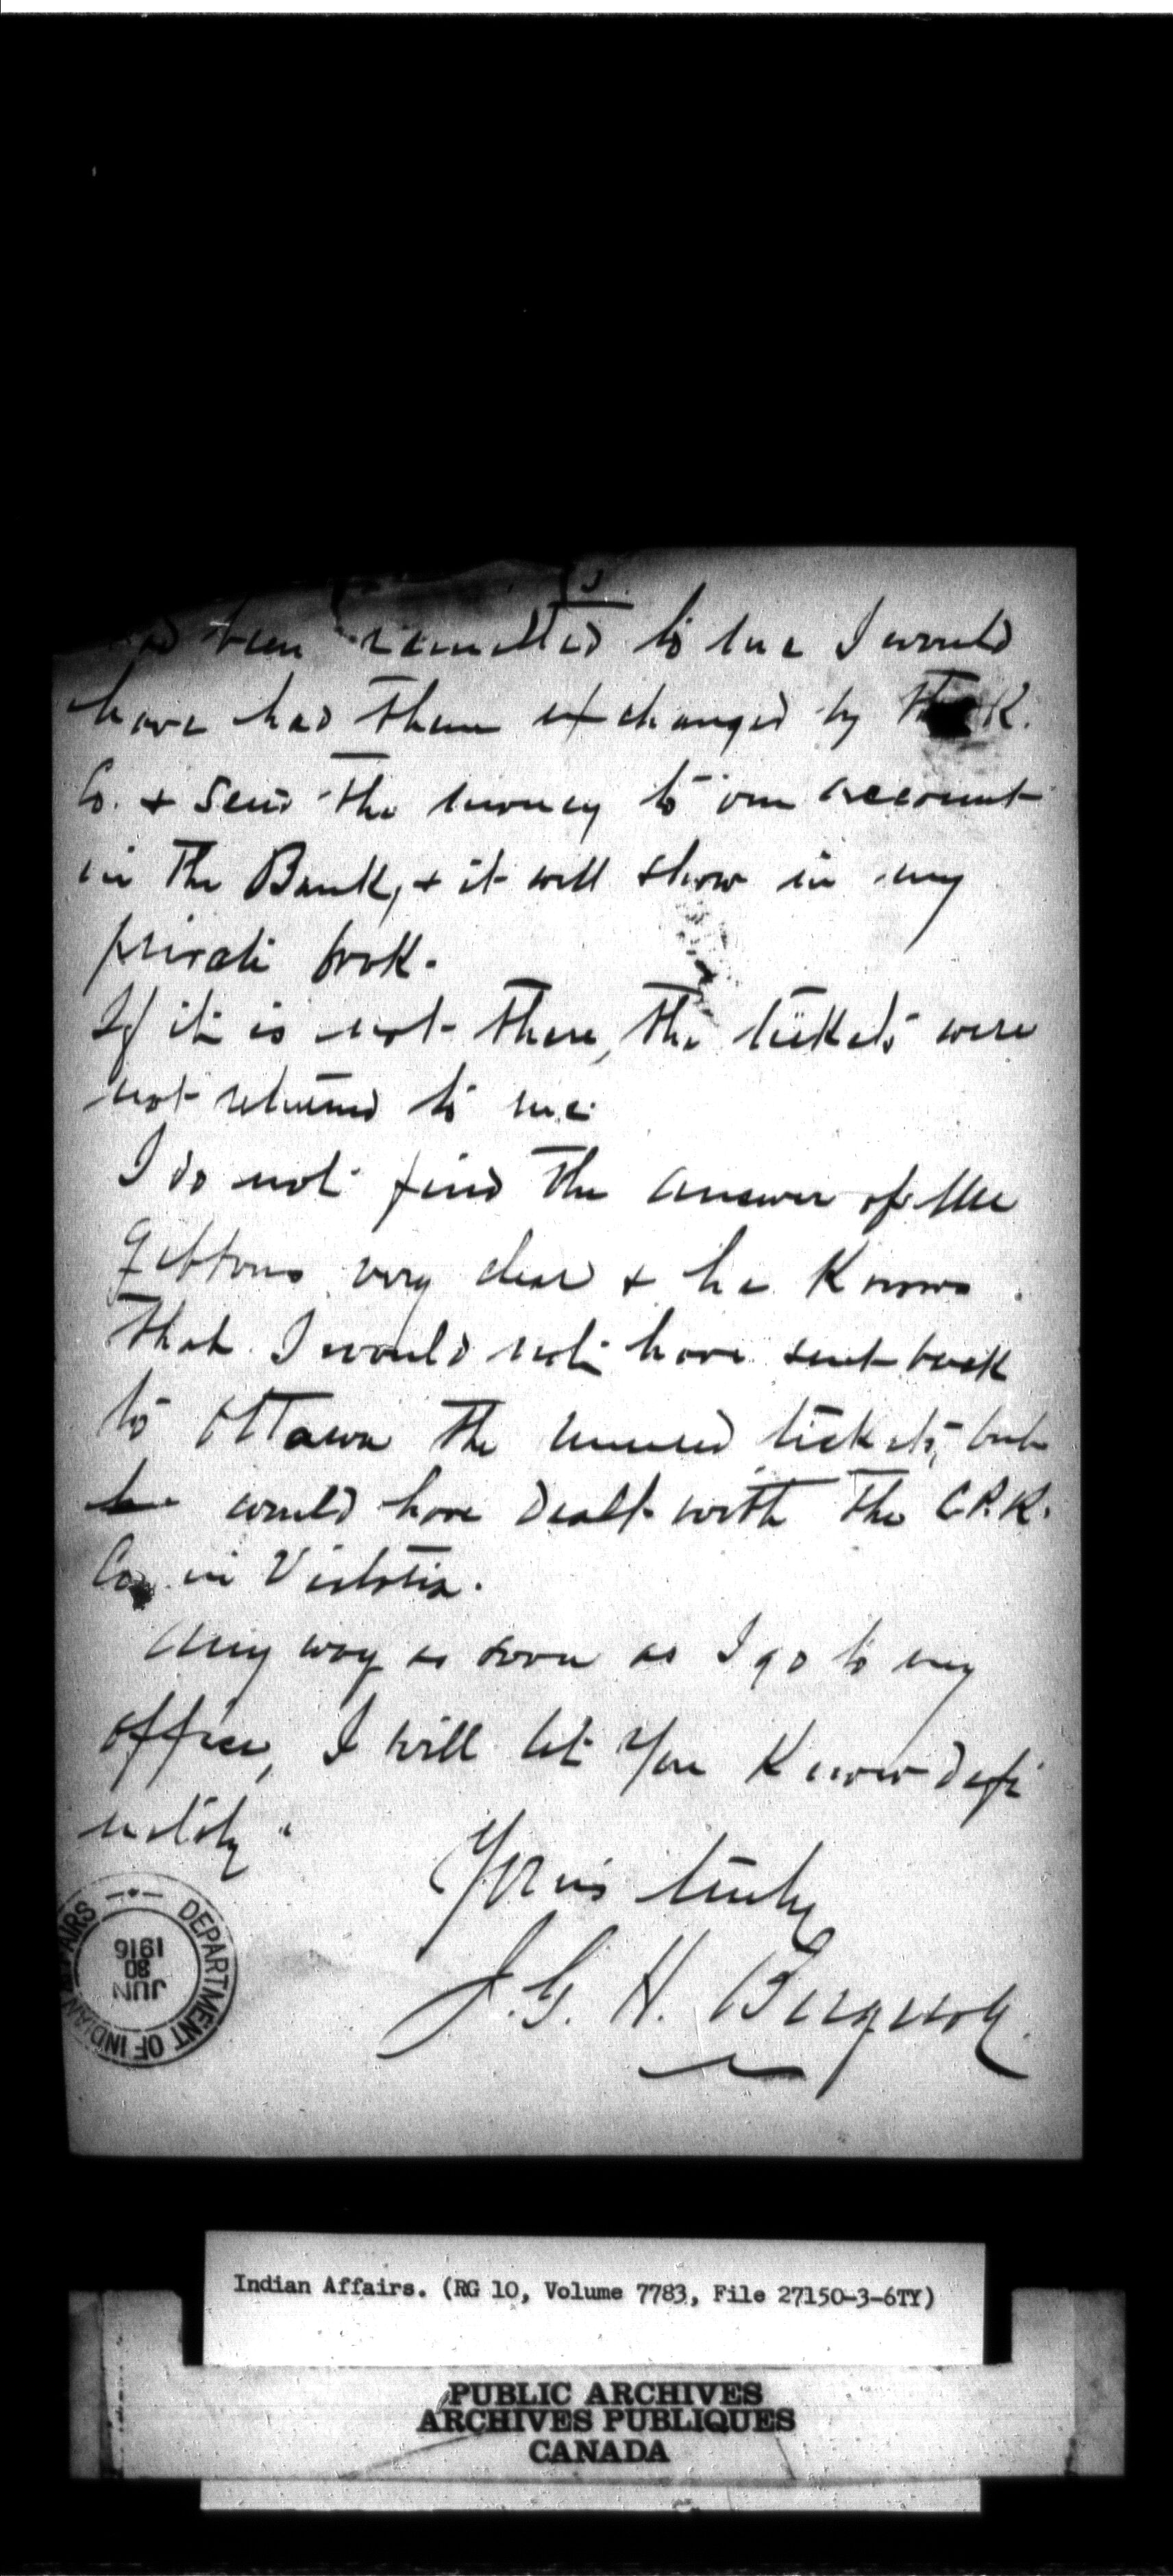 been remitted to me I would
have had them exchanged by R.
Co. & send the money to our account
in the Bank, & it will show in my
private book.
If it is not there, the tickets were
not returned to me.
I do not find the answer of Mr
Gibbons very clear & he Knows
that I would not have sent back
to Ottawa the unused tickets, but
would have dealt with the C.P.R.
Co. in Victoria.
Any way as soon as I go to my
office, I will let you Know defi
nitely.
Yours truly
J. G. H. Bergeron
DEPARTMENT OF INDIAN AFFAIRS
JUN
30
1916
Indian Affairs. (RG 10, Volume 7783, File 27150-3-6TY)
PUBLIC ARCHIVES
ARCHIVES PUBLIQUES
CANADA